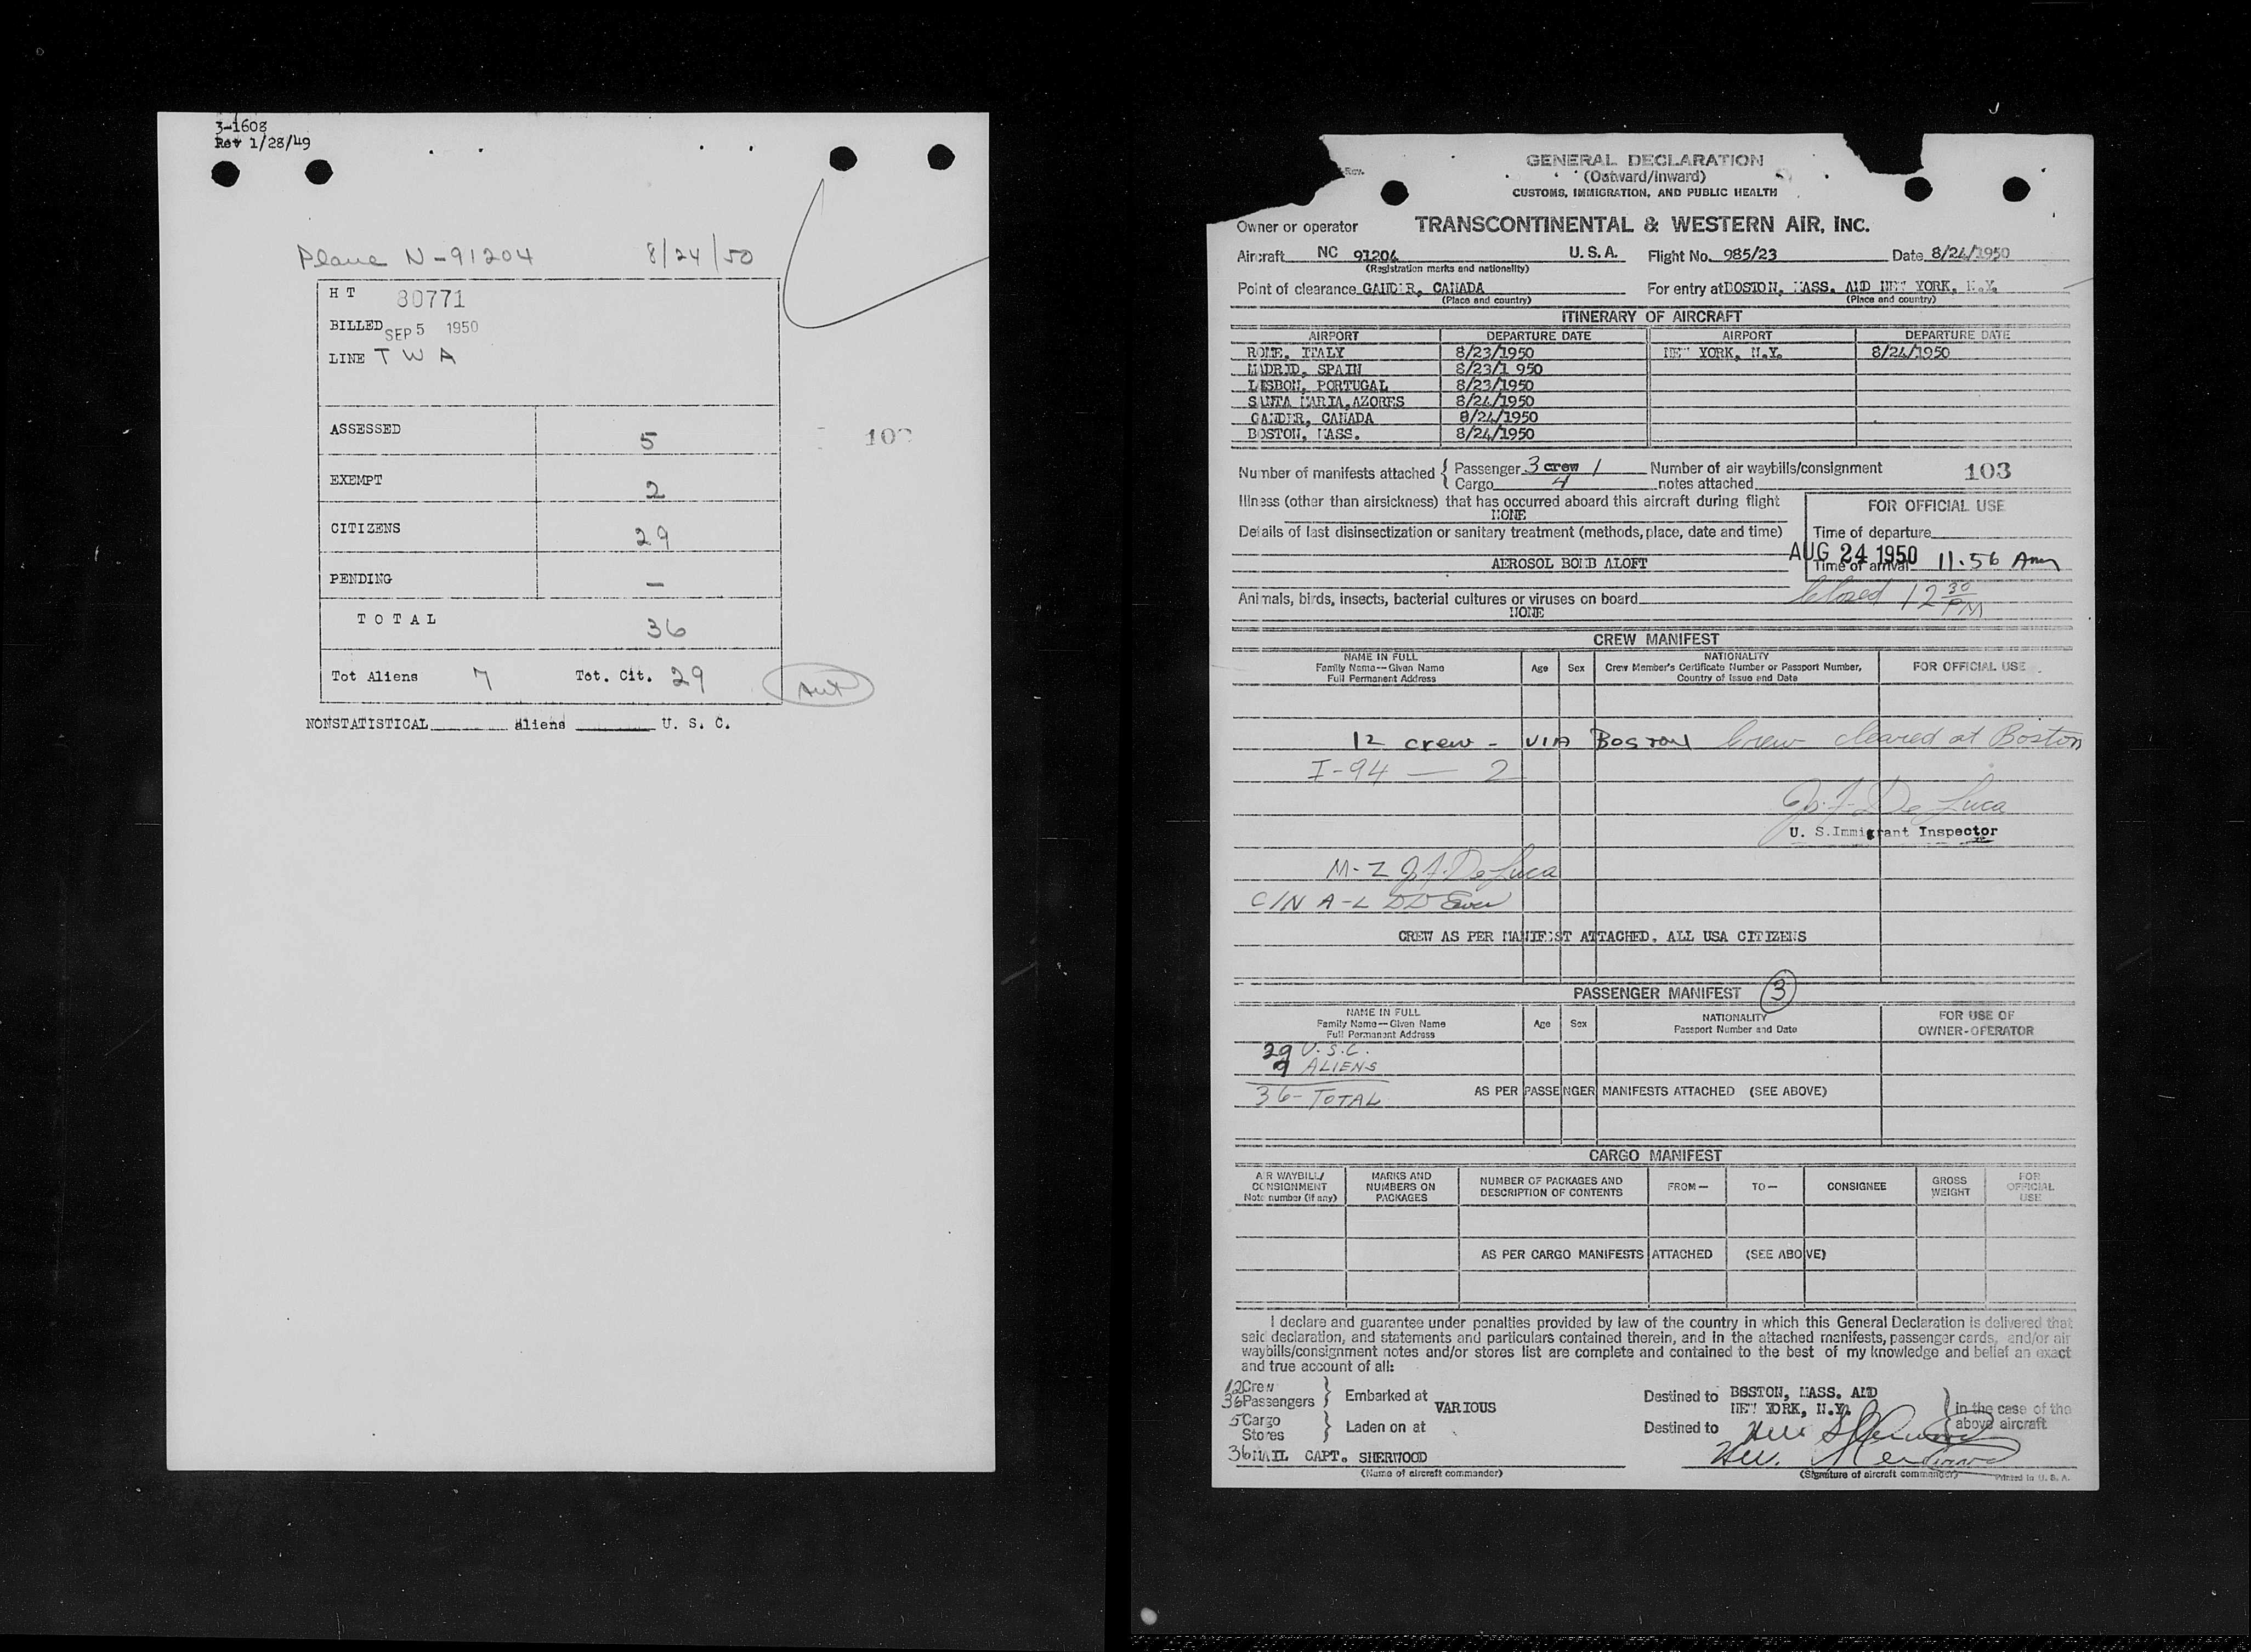 3-1608
Rev 1/28/49
Plane N-91204 8/24/50
H T 80771
BILLED SEP 5 1950
LINE T W A
ASSESSED 5
EXEMPT 2
CITIZENS 29
PENDING —
T O T A L 36
Tot Aliens 7 Tot. Cit. 29
NONSTATISTICAL aliens U. S. C.
Rev.
GENERAL DECLARATION
(Outward/Inward)
CUSTOMS, IMMIGRATION, AND PUBLIC HEALTH
Owner or operator TRANSCONTINENTAL & WESTERN AIR, INC.
Aircraft NC 91204 U. S. A. Flight No. 985/23 Date 8/24/1950
(Registration marks and nationality)
Point of clearance GANDER, CANADA For entry at BOSTON, MASS. AND NEW YORK, N.Y.
(Place and country) (Place and country)
ITINERARY OF AIRCRAFT
AIRPORT DEPARTURE DATE AIRPORT DEPARTURE DATE
ROME, ITALY 8/23/1950 NEW YORK, N.Y. 8/24/1950
MADRID, SPAIN 8/23/1 950
LISBON, PORTUGAL 8/23/1950
SANTA MARIA,AZORES 8/24/1950
GANDER, CANADA 8/24/1950
BOSTON, MASS. 8/24/1950
Number of manifests attached { Passenger 3 crew 1 Number of air waybills/consignment 103
Cargo 4 notes attached
Illness (other than airsickness) that has occurred aboard this aircraft during flight FOR OFFICIAL USE
NONE
Details of last disinsectization or sanitary treatment (methods, place, date and time) Time of departure
AEROSOL BOMB ALOFT AUG 24 1950 11.56 Am
Time of arrival
Animals, birds, insects, bacterial cultures or viruses on board closed 12 30 PM
NONE
CREW MANIFEST
NAME IN FULL
Family Name—Given Name
Full Permanent Address
Age Sex
NATIONALITY
Crew Member's Certificate Number or Passport Number,
Country of Issue and Date
FOR OFFICIAL USE
12 crew - VIA BOSTON Crew cleared at Boston
I-94 — 2
J. F. De Luca
U. S.Immigrant Inspector
M-Z J. F. De Luca
C/N A-L
CREW AS PER MANIFEST ATTACHED. ALL USA CITIZENS
PASSENGER MANIFEST 3
NAME IN FULL
Family Name—Given Name
Full Permanent Address
Age Sex
NATIONALITY
Passport Number and Date
FOR USE OF
OWNER-OPERATOR
29 U.S.C.
7 ALIENS
36-TOTAL AS PER PASSENGER MANIFESTS ATTACHED (SEE ABOVE)
CARGO MANIFEST
AIR WAYBILL/
CONSIGNMENT
Note number (if any)
MARKS AND
NUMBERS ON
PACKAGES
NUMBER OF PACKAGES AND
DESCRIPTION OF CONTENTS
FROM— TO— CONSIGNEE
GROSS
WEIGHT
FOR
OFFICIAL
USE
AS PER CARGO MANIFESTS ATTACHED (SEE ABOVE)
I declare and guarantee under penalties provided by law of the country in which this General Declaration is delivered that
said declaration, and statements and particulars contained therein, and in the attached manifests, passenger cards, and/or air
waybills/consignment notes and/or stores list are complete and contained to the best of my knowledge and belief an exact
and true account of all:
12 Crew
36 Passengers } Embarked at VARIOUS Destined to BOSTON, MASS. AND NEW YORK, N.Y. } in the case of the
5 Cargo above aircraft
Stores } Laden on at Destined to
36 MAIL CAPT. SHERWOOD
(Name of aircraft commander) (Signature of aircraft commander) Printed in U. S. A.